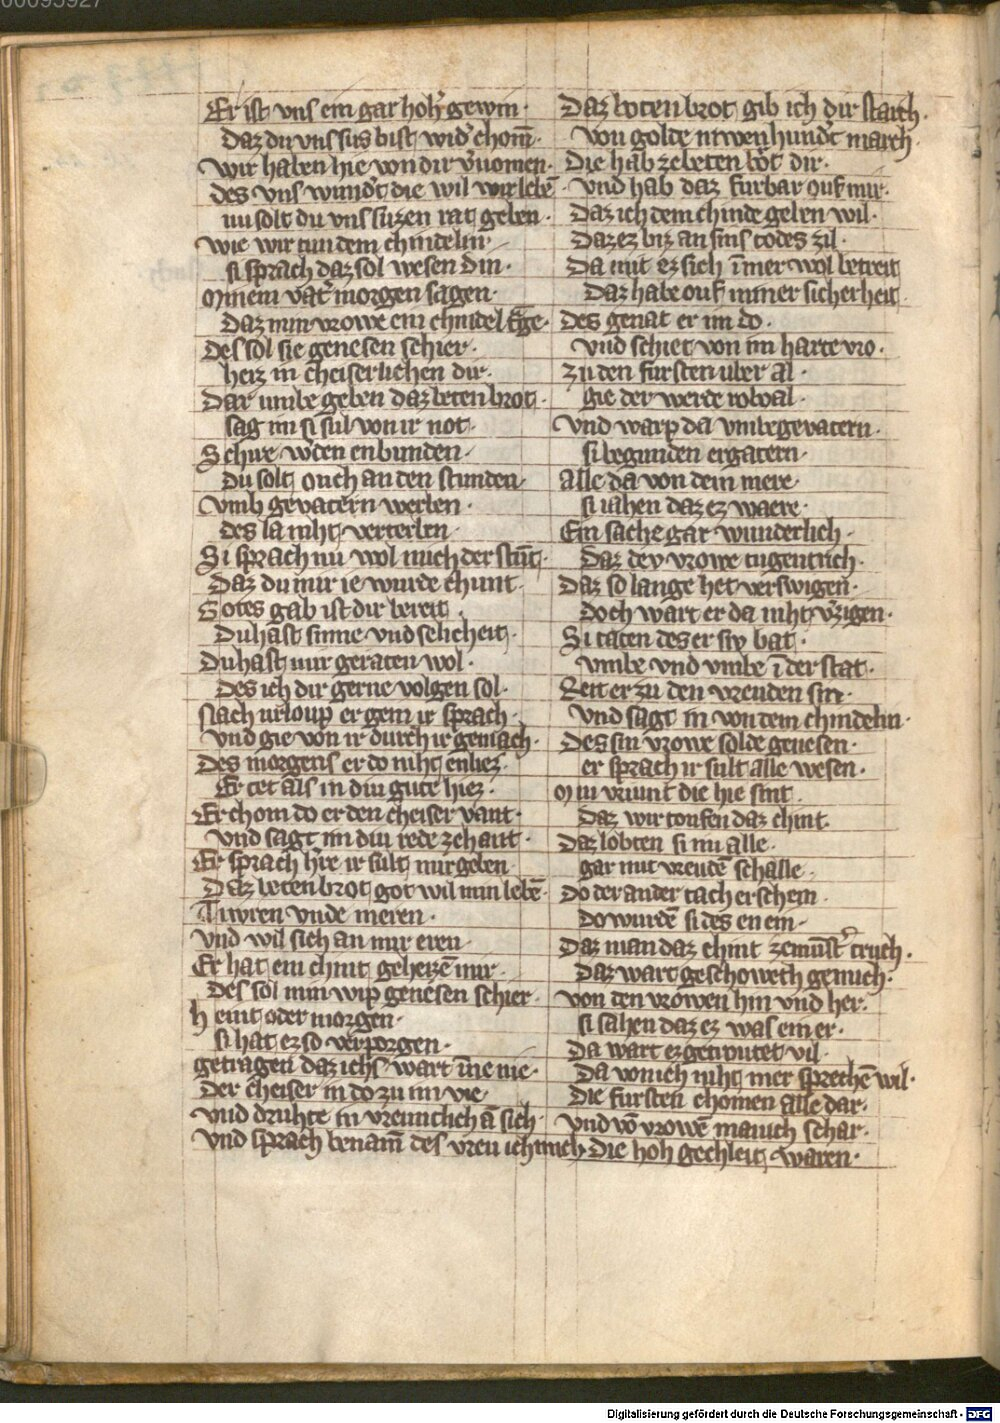 00095927
Er ist vns ein gar hoh' gewin ·
Daz du vns sus bist wid' chom̄ ·
wir haben hie von dir v'nomen ·
des vns wund't die wil wir lebē ·
nu solt du vns suzen rat geben ·
wie wir tun dem chindelin ·
si sprach daz sol wesen din ·
Minem vat' morgen sagen ·
Daz min vrowe ein chindel
Des sol sie genesen schier ·
heiz in cheiserlichen dir ·
Dar umbe geben daz beten brot ·
sag im si sul von ir not ·
Schire w'den enbunden ·
Du solt ouch an den stunden ·
Vmb gevatern werben ·
des la niht verterben ·
Si sprach nu wol mich der stūt ·
Daz du mir ie wurde chunt ·
Gotes gab ist dir bereit ·
Du hast sinne vnd selicheit ·
Du hast mir geraten wol ·
Des ich dir gerne volgen sol ·
Nach urloup er gein ir sprach ·
vnd gie von ir durch ir gemach ·
Des morgens er do niht enliez ·
Er tet als in diu gute hiez ·
Er chom do er den cheiser vant ·
vnd sagt im diu rede zehant ·
Er sprach h're ir sult mir geben
Daz beten brot got wil min lebē ·
Tiwren vnde meren ·
vnd wil sich an mir eren ·
Er hat ein chint geheizē mir ·
Des sol min wip genesen schier ·
heint oder morgen ·
si hat ez so verporgen ·
getragen daz ichs wart īne nie ·
Der cheiser in do zu im vie ·
vnd druhte in vreuntlich ā sich ·
vnd sprach benam̄ des vreu ich mich ·
Daz boten brot gib ich dir starch ·
von golde niwen hund't march ·
Die hab ze beten b'ot dir ·
vnd hab daz furbar ouf mir ·
Daz ich dem chinde geben wil ·
Daz ez biz an sins todes zil ·
Da mit ez sich īmer wol betreit
Daz habe ouf miner sicherheit
Des genat er im do ·
vnd schiet von im harte vro ·
Zu den fursten uber al ·
gie der werde roboal ·
vnd warp da vmbe gevatern ·
si begunden ergatern ·
Alle da von dem mere ·
si iahen daz ez waere ·
Ein sache gar wunderlich ·
Daz dev vrowe tugentrich ·
Daz so lange het verswigen ·
Doch wart er da niht v'zigen ·
Si taten des er siv bat ·
vmbe vnd vmbe ī der stat ·
Reit er zu den vreuden sin ·
vnd sagt in von dem chindelin ·
Des sin vrowe solde genesen ·
er sprach ir sult alle wesen ·
Min vriunt die hie sint ·
Daz wir toufen daz chint ·
Daz lobten si im alle ·
gar mit vreudē schalle ·
Do der ander tach erschein ·
Do wurdē si des en ein ·
Daz man daz chint ze mūst' truch ·
Daz wart geschoweth genuch ·
von den vrowen hin vnd her ·
si sahen daz ez was ein er ·
Da wart ez getroutet vil ·
Da von ich niht mer sprechē wil ·
Die fursten chomen alle dar ·
vnd vō vrowē manich schar ·
Die hoh gechleit waren ·
Digitalisierung gefördert durch die Deutsche Forschungsgemeinschaft - DFG